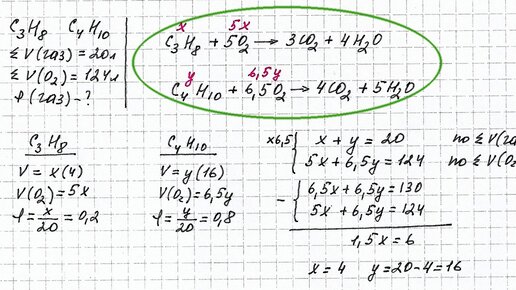 C₃H₈ C₄H₁₀
ΣV(газ) = 20л
ΣV(O₂) = 124л
φ(газ) - ?
x 5x
C₃H₈ + 5O₂ → 3CO₂ + 4H₂O
y 6,5y
C₄H₁₀ + 6,5O₂ → 4CO₂ + 5H₂O
C₃H₈
V = x (4)
V(O₂) = 5x
φ = x/20 = 0,2
C₄H₁₀
V = y (16)
V(O₂) = 6,5y
φ = y/20 = 0,8
x6,5 { x + y = 20 по ΣV(га
5x + 6,5y = 124 по ΣV(O₂
- { 6,5x + 6,5y = 130
5x + 6,5y = 124
1,5x = 6
x = 4 y = 20 - 4 = 16